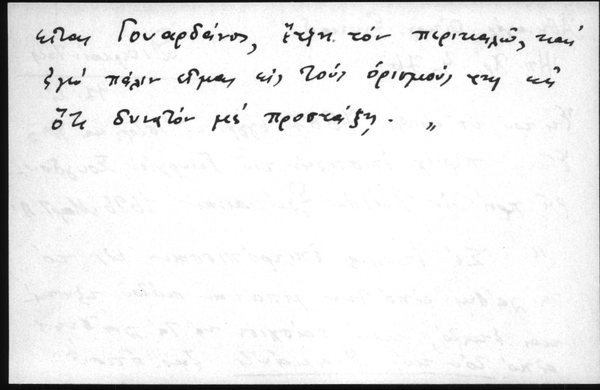 εἶται Γουαρδιάνος, ἔτζη τόν περικαλῶ, καί
ἐγώ πάλιν εἶμαι εἰς τούς ὁρισμούς της κὲ
ὅτι δυνατόν μέ προστάξη. "